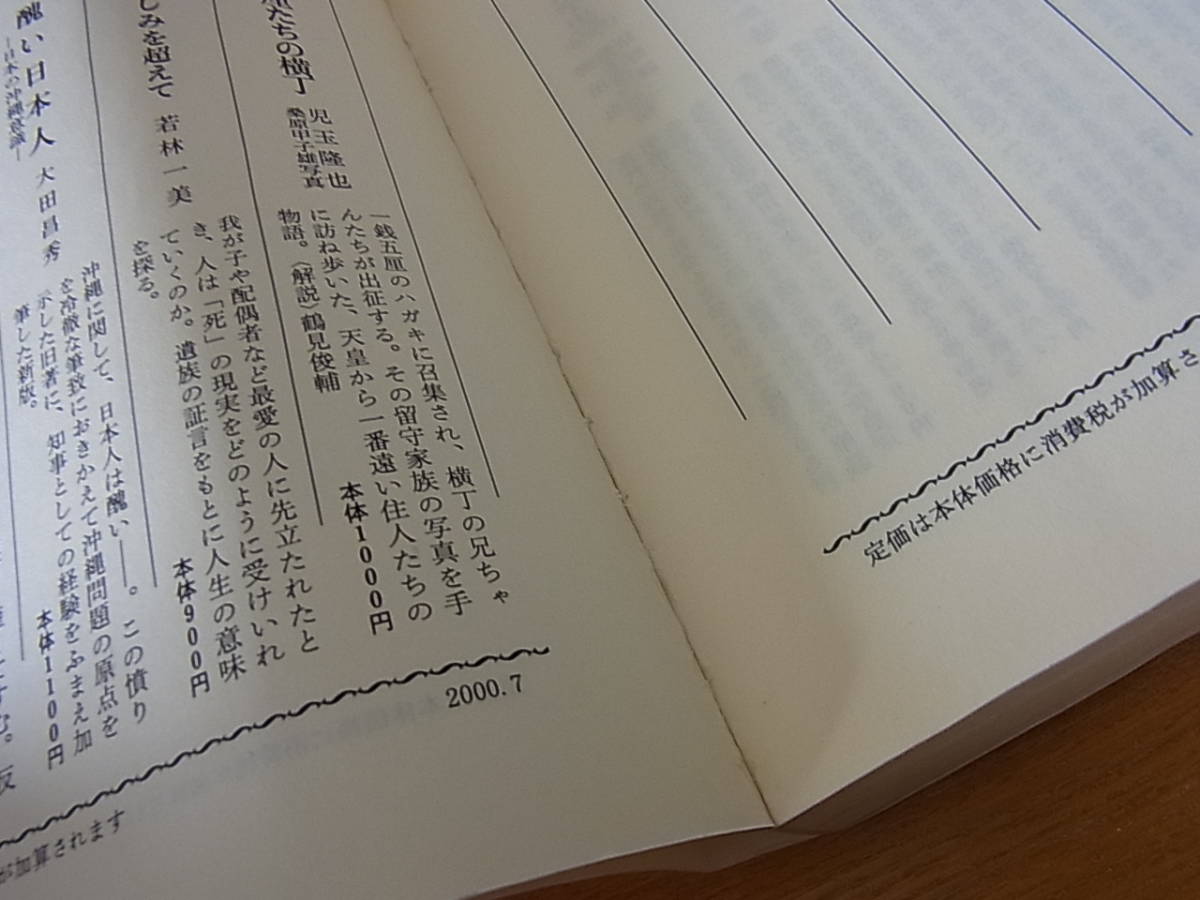 たちの横丁
児玉隆也
桑原甲子雄写真
一銭五厘のハガキに召集され、横丁の兄ちゃ
んたちが出征する。その留守家族の写真を手
に訪ね歩いた、天皇から一番遠い住人たちの
物語。〈解説〉鶴見俊輔
本体1000円
しみを超えて
若林一美
我が子や配偶者など最愛の人に先立たれたと
き、人は「死」の現実をどのように受けいれ
ていくのか。遺族の証言をもとに人生の意味
を探る。
本体900円
醜い日本人
―日本の沖縄意識―
大田昌秀
沖縄に関して、日本人は醜い――。この憤り
を冷徹な筆致におきかえて沖縄問題の原点を
示した旧著に、知事としての経験をふまえ加
筆した新版。
本体1100円
2000.7
が加算されます
定価は本体価格に消費税が加算さ